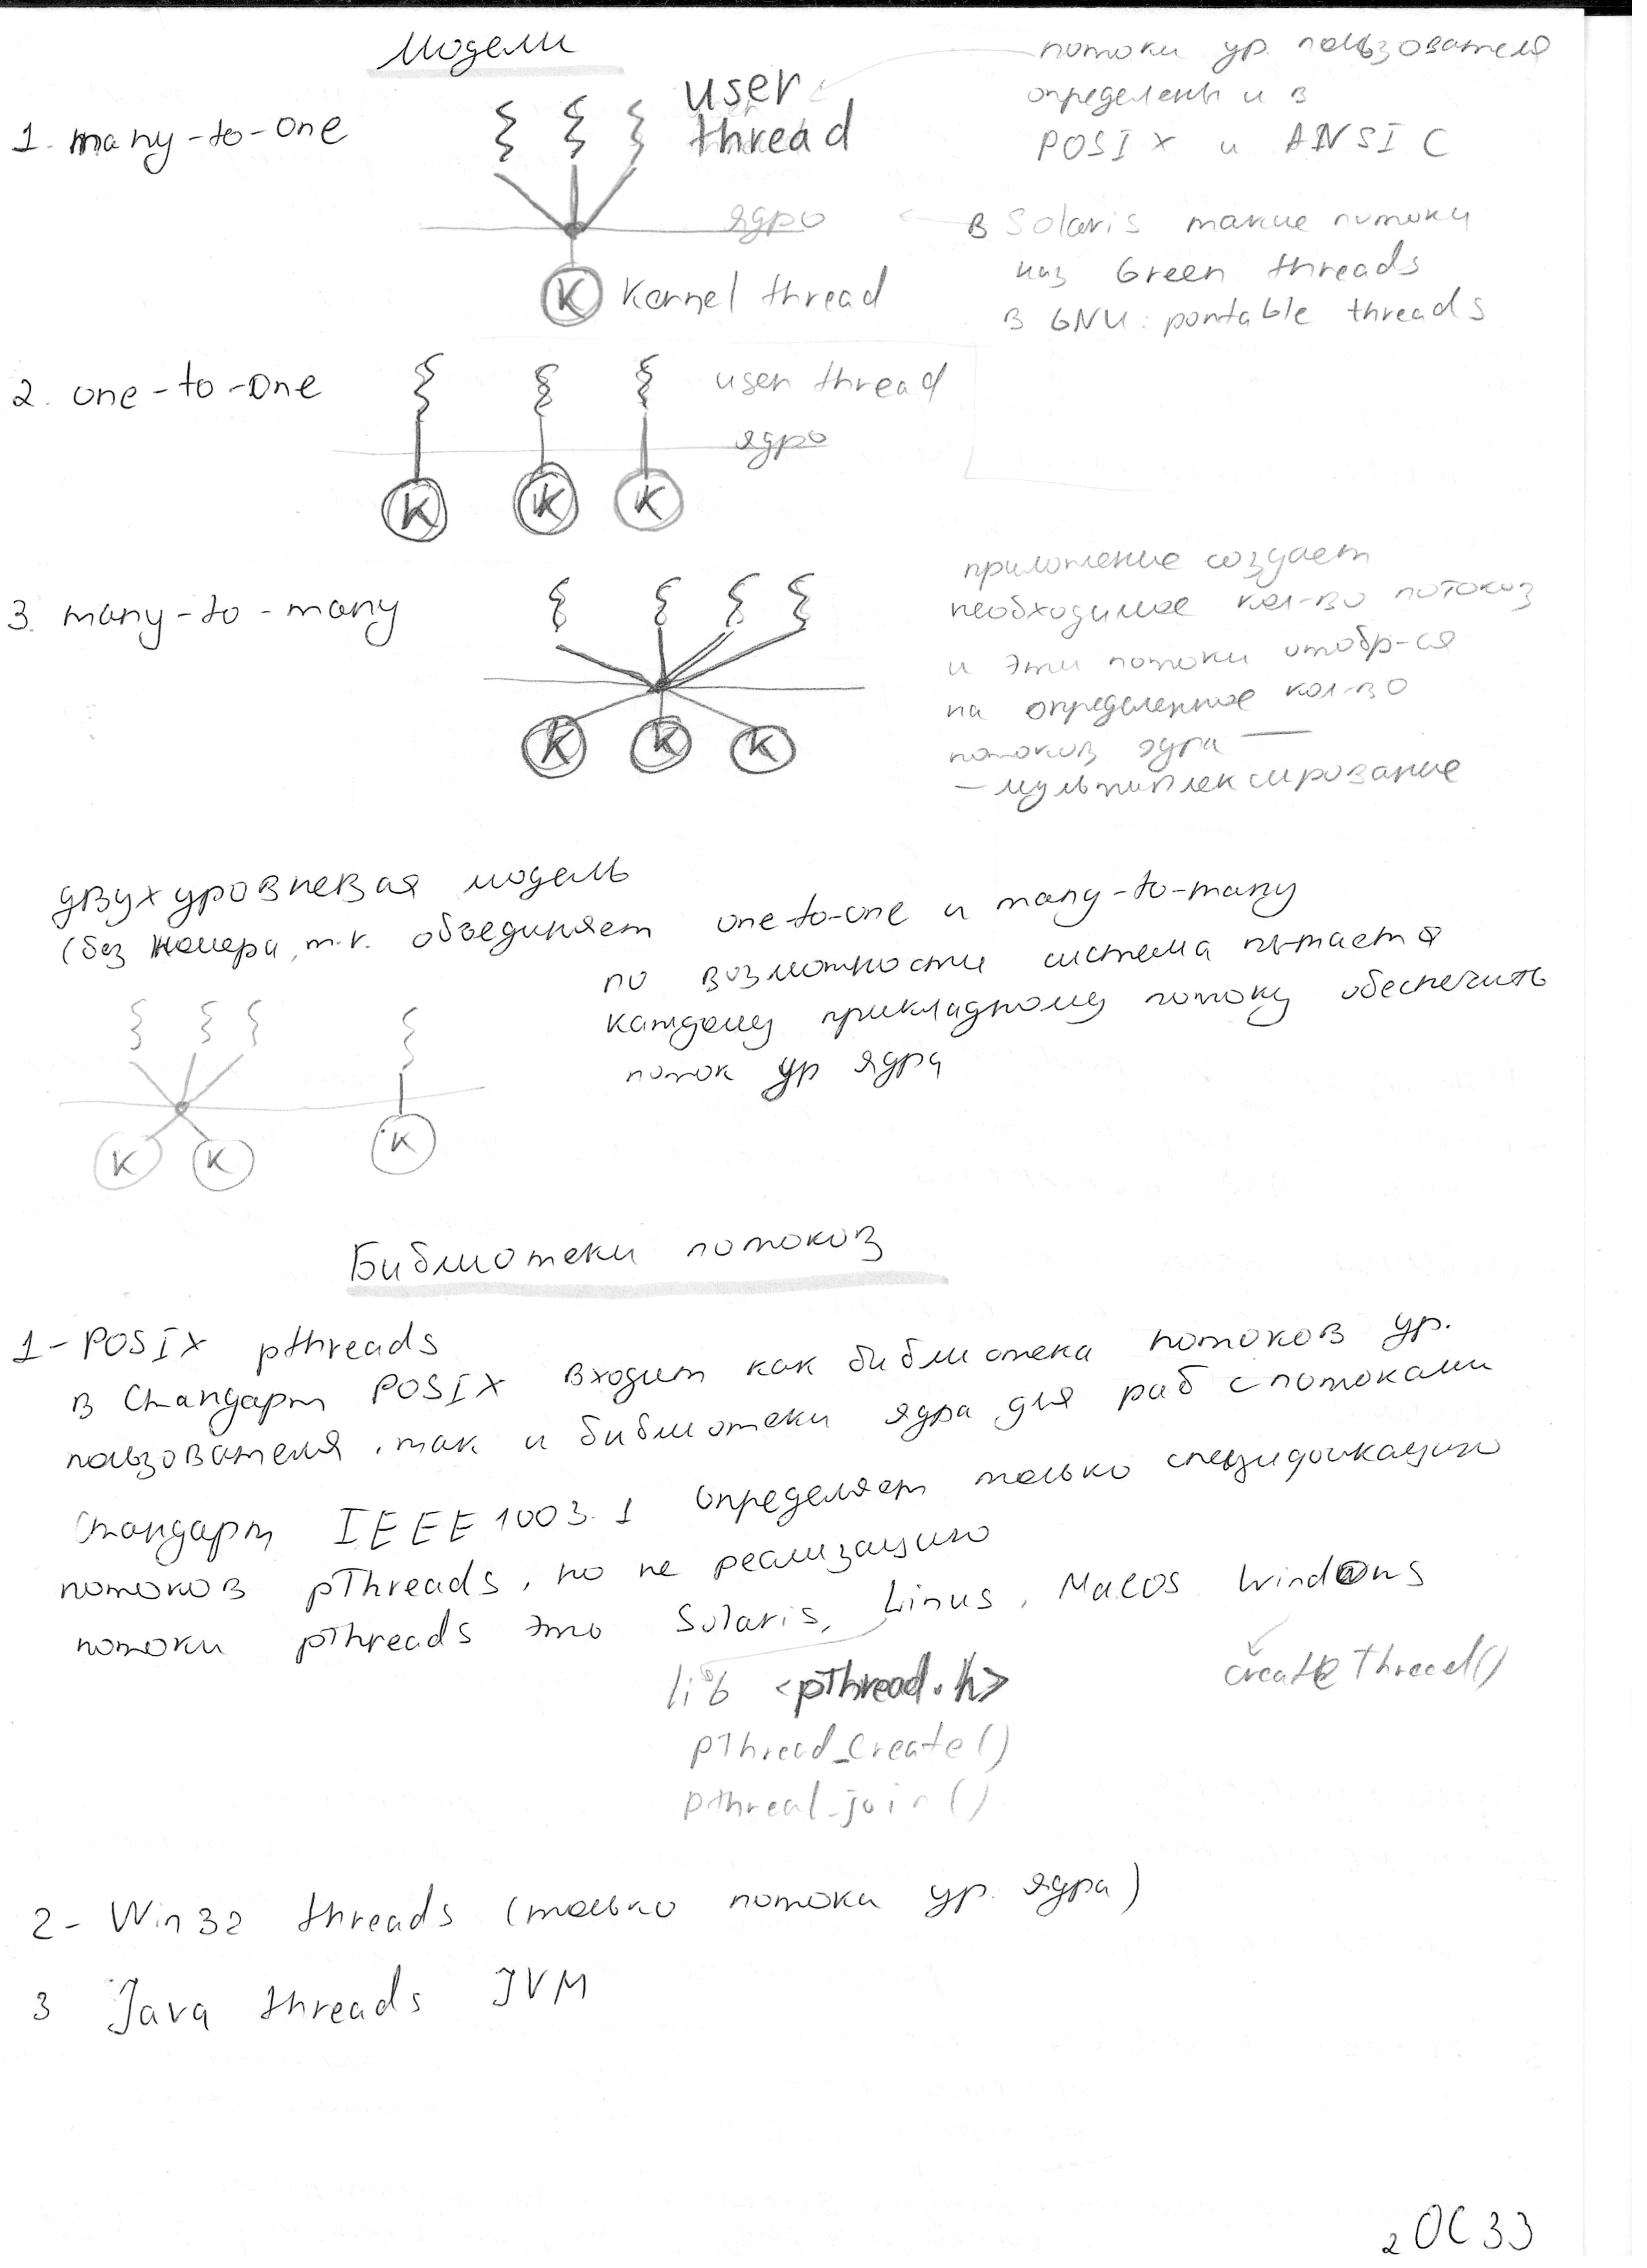 Модели
1. many-to-one
user
thread
потоки ур. пользователя
определены и в
POSIX и ANSI C
ядро
Kernel thread
в Solaris такие потоки
наз Green threads
в GNU: portable threads
2. one-to-one
user thread
ядро
K K K
3. many-to-many
K K K
приложение создает
необходимое кол-во потоков
и эти потоки отобр-ся
на определенное кол-во
потоков ядра —
— мультиплексирование
двухуровневая модель
(без номера, т.к. объединяет one-to-one и many-to-many
по возможности система пытается
каждому прикладному потоку обеспечить
поток ур ядра
K K K
Библиотеки потоков
1- POSIX pthreads
в стандарт POSIX входит как библиотека потоков ур.
пользователя, так и библиотеки ядра для раб с потоками
Стандарт IEEE 1003.1 определяет только спецификацию
потоков pThreads, но не реализацию
потоки pThreads это Solaris, Linus, MacOS Windows
lib <pThread.h>
create Thread()
pThread_create()
pthread_join()
2- Win32 threads (только потоки ур. ядра)
3 Java threads JVM
2 ОС 33